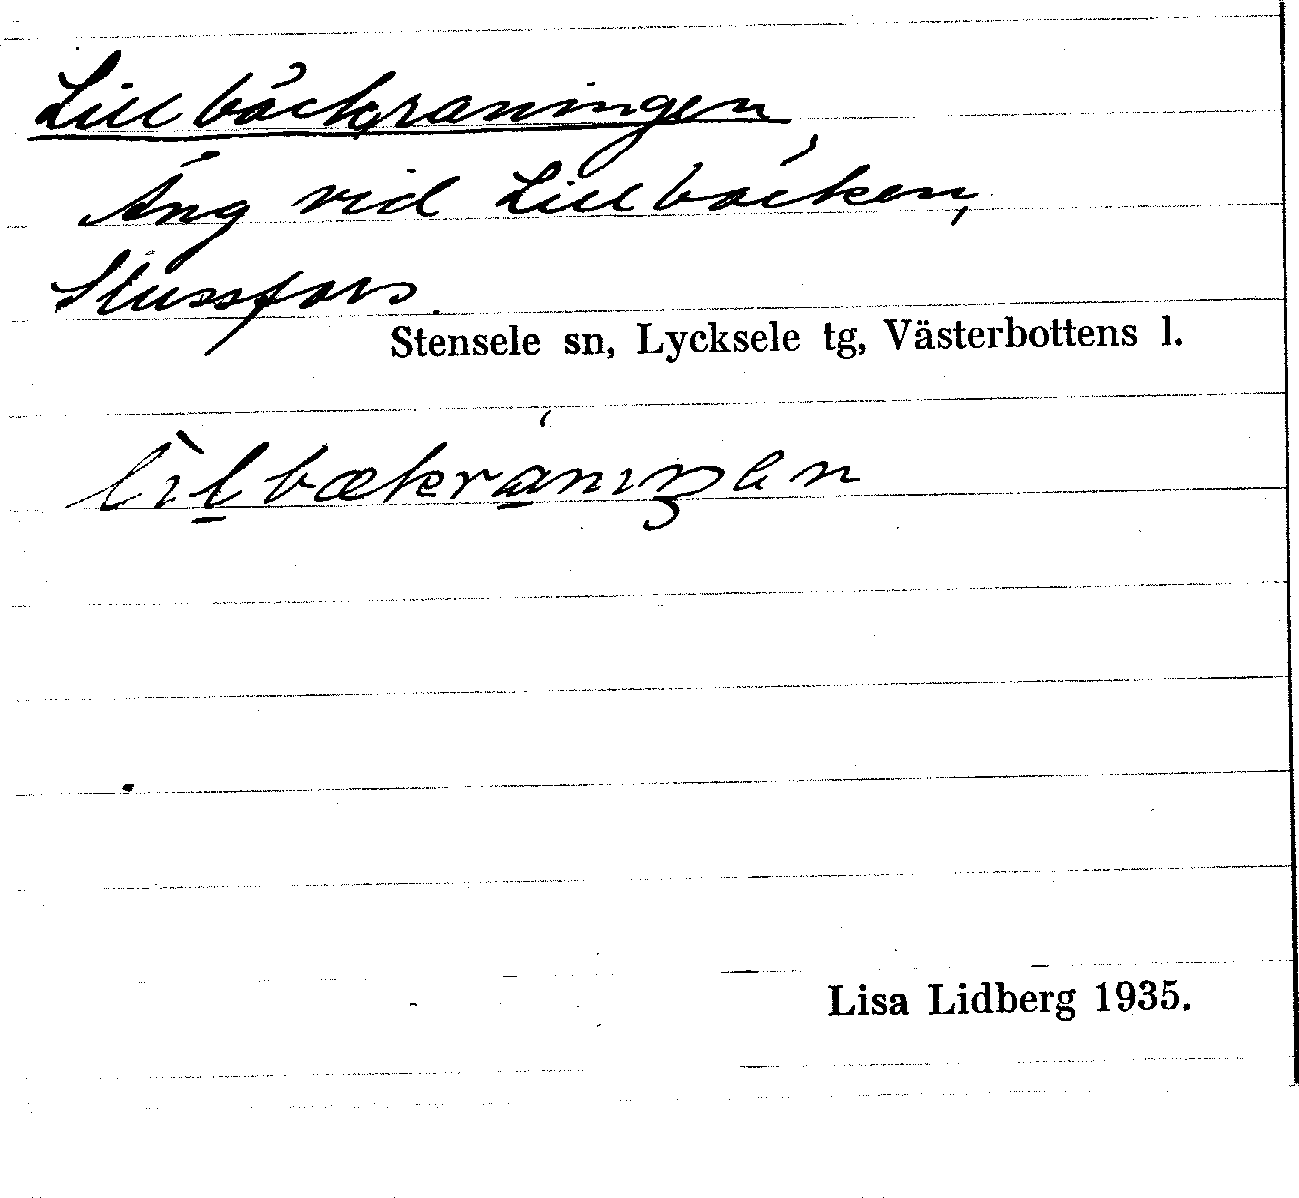 Lillbäckraningen
Äng vid Lillbäcken,
Slussfors.
Stensele sn, Lycksele tg, Västerbottens l.
Lisa Lidberg 1935.